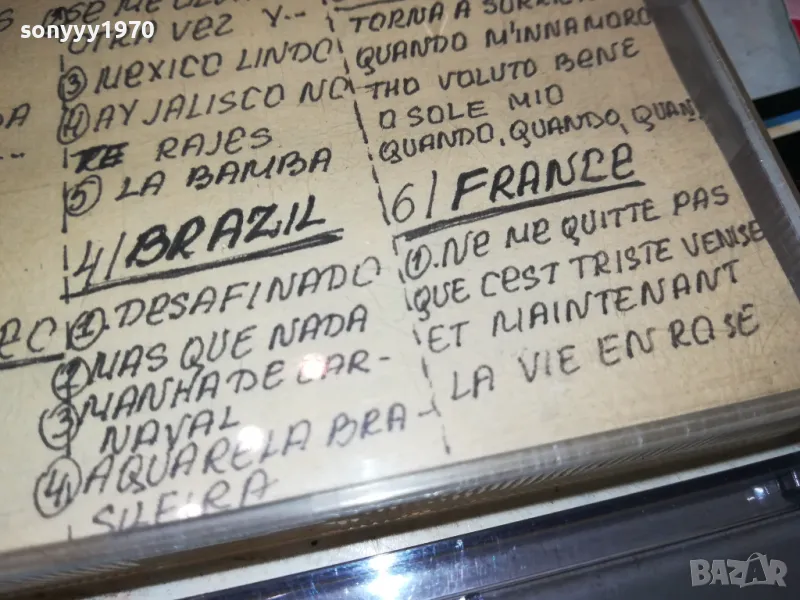 sonyyy1970
VEZ Y...
③ MEXICO LINDO
④ AY JALISCO NO
TE RAJES
⑤ LA BAMBA
4/ BRAZIL
①. DESAFINADO
② MAS QUE NADA
③ MANHA DE CAR-
NAVAL
④. AQUARELA BRA-
SILEIRA
TORNA A SURRIE
QUANDO M'INNAMORO
THO VOLUTO BENE
O SOLE MIO
QUANDO, QUANDO, QUAN
6/ FRANCE
①. Ne Me QUITTE PAS
QUE C'EST TRISTE VENISE
ET MAINTENANT
LA VIE EN ROSE
BAZAR